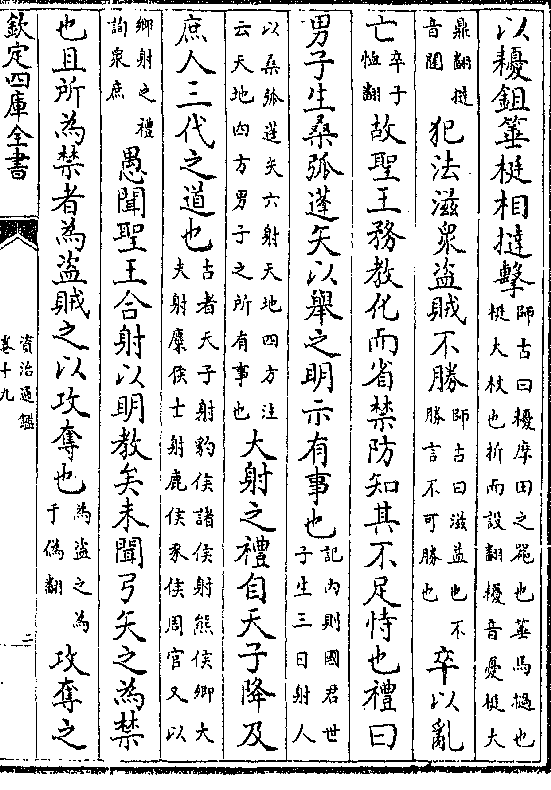 以耰鉏箠梃相撻擊師古曰耰摩田之器也箠馬檛也梃大杖也折而設翻耰音憂梃大
鼎翻撻音闥犯法滋衆盜賊不勝師古曰滋益也不勝言不可勝也卒以亂
亡卒子恤翻故聖王務教化而省禁防知其不足恃也禮曰
男子生桑弧蓬矢以舉之明示有事也記内則國君世子生三日射人
以桑弧蓬矢六射天地四方注云天地四方男子之所有事也大射之禮自天子降及
庶人三代之道也古者天子射豹侯諸侯射熊侯卿大夫射麋侯士射鹿侯豕侯周官又以
鄉射之禮詢衆庶愚聞聖王合射以明教矣未聞弓矢之為禁
也且所為禁者為盜賊之以攻奪也為盜之為于偽翻攻奪之
欽定四庫全書
資治通鑑
卷十九
二